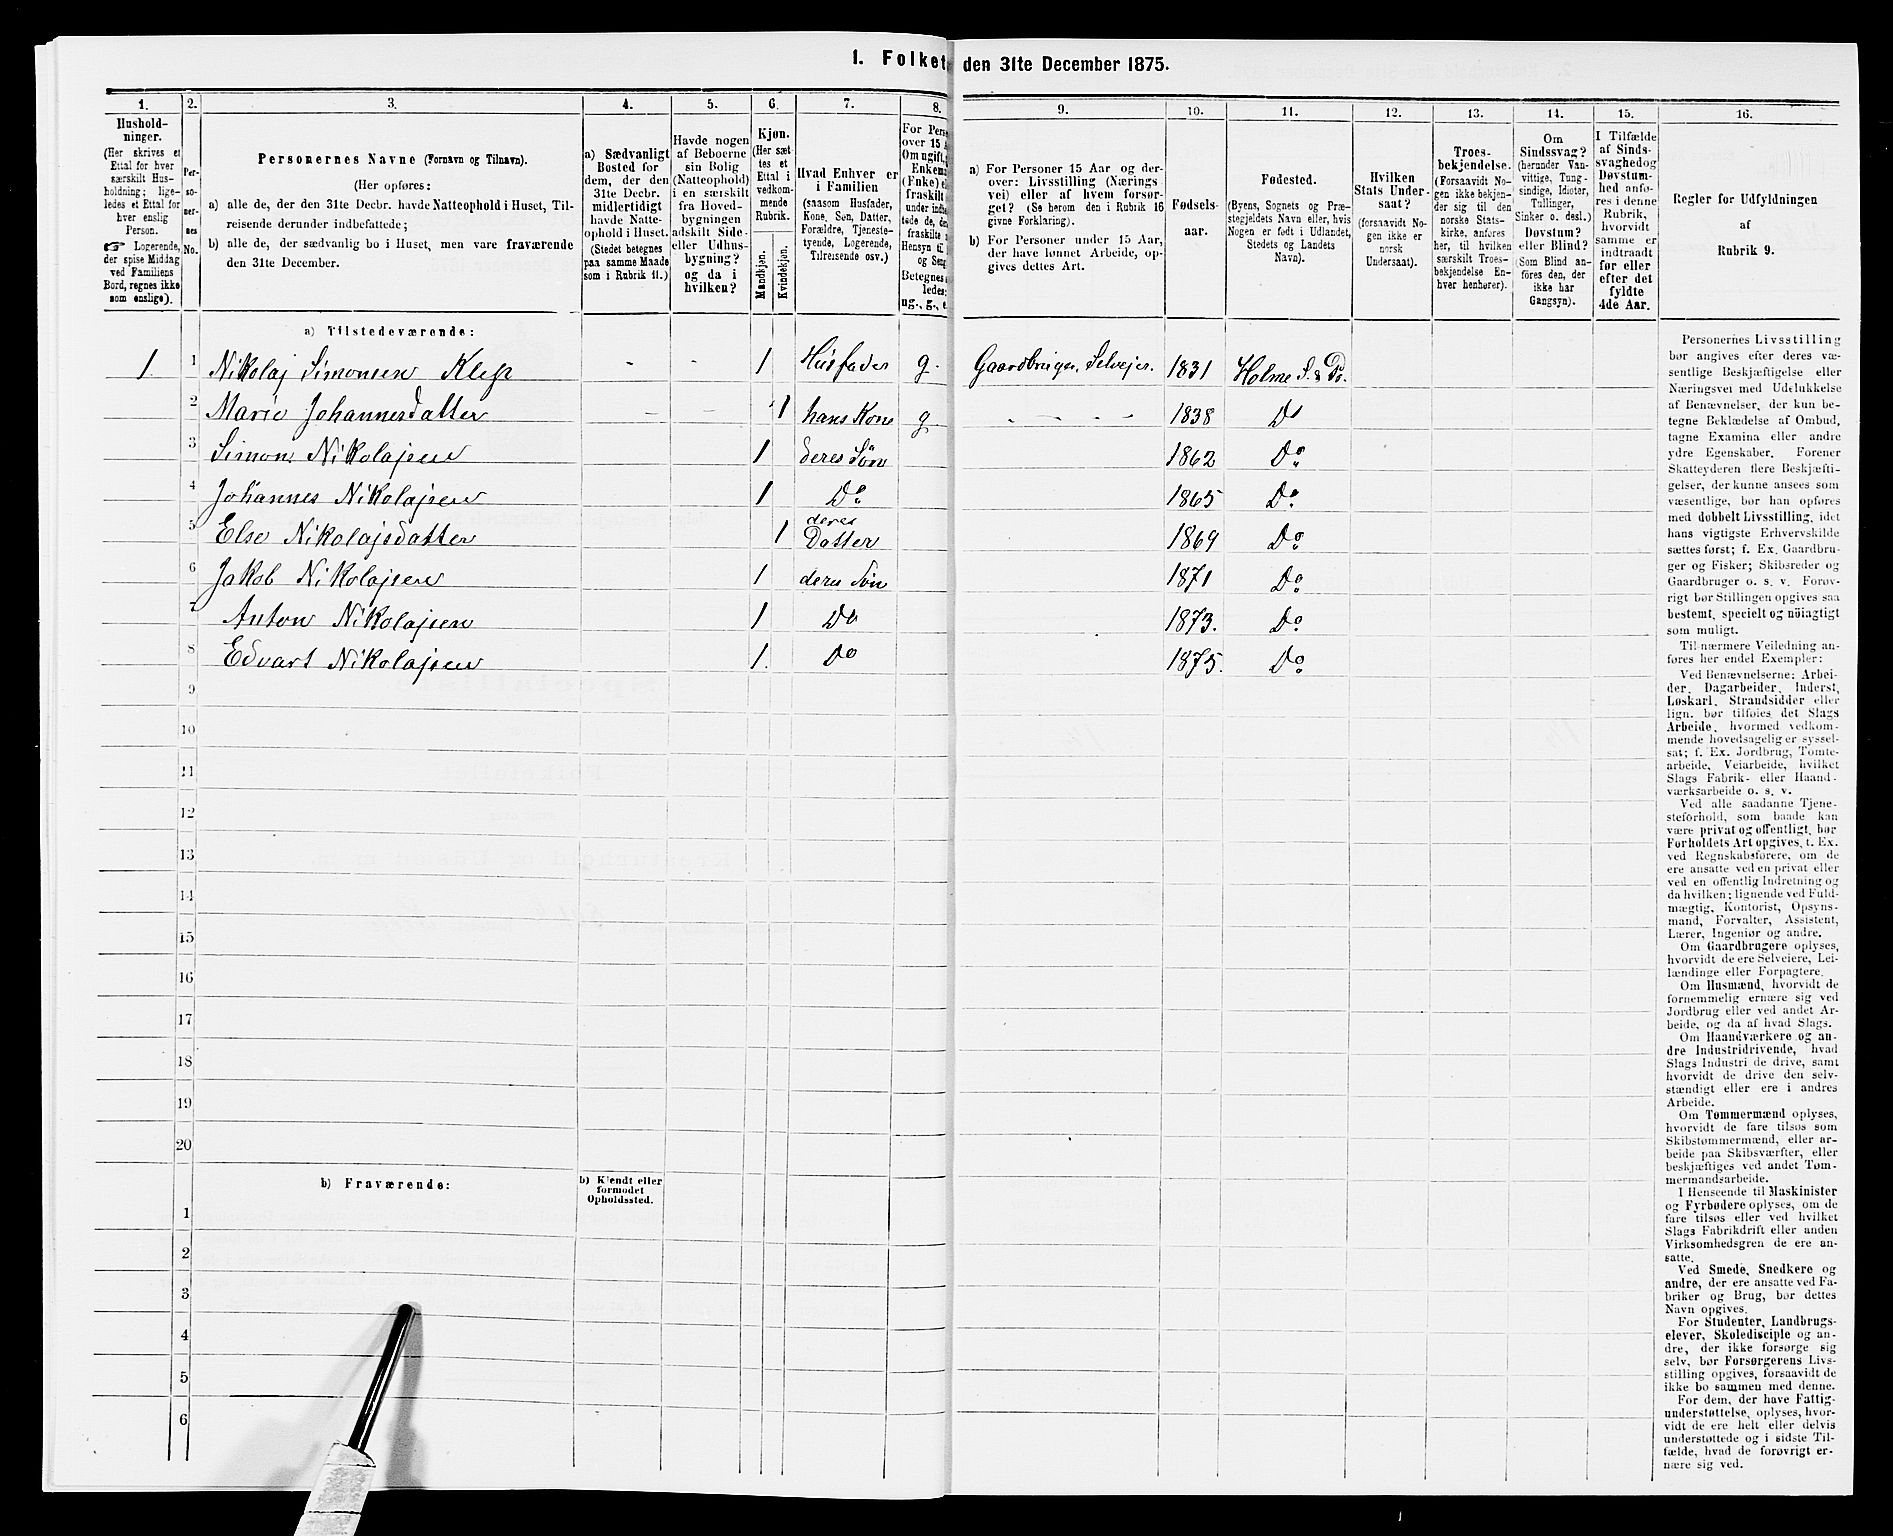 1. Folket den 31te December 1875.
1. 2. 3. 4. 5. 6. 7. 8. 9. 10. 11. 12. 13. 14. 15. 16.
Hushold-
ninger.
(Her skrives et
Ettal for hver
særskilt Hus-
holdning; lige-
ledes et Ettal for
hver enslig
Person.
☞ Logerende,
der spise Middag
ved Familiens
Bord, regnes ikke
som enslige).
Per-
so-
ner-
nes
No.
Personernes Navne (Fornavn og Tilnavn).
(Her opføres:
a) alle de, der den 31te Decbr. havde Natteophold i Huset, Til-
reisende derunder indbefattede;
b) alle de, der sædvanlig bo i Huset, men vare fraværende
den 31te December.
a) Sædvanligt
Bosted for
dem, der den
31te Decbr.
midlertidigt
havde Natte-
ophold i Huset.
(Stedet betegnes
paa samme Maade
som i Rubrik 11.)
Havde nogen
af Beboerne
sin Bolig
(Natteophold)
i en særskilt
fra Hoved-
bygningen
adskilt Side-
eller Udhus-
bygning?
og da i
hvilken?
Kjøn.
(Her sæt-
tes et
Ettal i
vedkom-
mende
Rubrik.
Mandkjøn.
Kvindekjøn.
Hvad Enhver er
i Familien
(saasom Husfader,
Kone, Søn, Datter,
Forældre, Tjeneste-
tyende, Logerende,
Tilreisende osv.)
For Perso
over 15 A
Om ugift,
Enkema
(Enke) e
fraskilt
under indb
tede de, de
fraskilte
Hensyn til
og Seng
Betegnes s
ledes:
ug., g., e
a) For Personer 15 Aar og der-
over: Livsstilling (Nærings
vei) eller af hvem forsør-
get? (Se herom den i Rubrik 16
givne Forklaring).
b) For Personer under 15 Aar,
der have lønnet Arbeide, op-
gives dettes Art.
Fødsels-
aar.
Fødested.
(Byens, Sognets og Præ-
stegjeldets Navn eller, hvis
Nogen er født i Udlandet,
Stedets og Landets
Navn).
Hvilken
Stats Under-
saat?
(forsaavidt No-
gen ikke er
norsk
Undersaat).
Troes-
bekjendelse.
(Forsaavidt No-
gen ikke bekjen-
der sig til den
norske Stats-
kirke, anføres
her, til hvilken
særskilt Troes-
bekjendelse En-
hver henhører).
Om
Sindssvag?
(herunder Van-
vittige, Tung-
sindige, Idioter,
Tullinger,
Sinker o. desl.)
Døvstum?
eller Blind?
(Som Blind an-
føres den, der
ikke har
Gangsyn).
I Tilfælde
af Sinds-
svaghed og
Døvstum-
hed anfø-
res i denne
Rubrik,
hvorvidt
samme er
indtraadt
før eller
efter det
fyldte
4de Aar.
Regler for Udfyldningen
af
Rubrik 9.
a) Tilstedeværende:
1. 1 Nikolaj Simonsen Klep - - 1 Husfader g. Gaardbruger, Selvejer. 1831 Holme S. & Pr.
2 Marie Johannesdatter - - - 1 hans Kone g - - - - 1838 Do
3 Simon Nikolajsen 1 deres Søn 1862 Do
4 Johannes Nikolajsen 1 Do 1865 Do
5 Else Nikolajsdatter 1 deres Datter 1869 Do
6 Jakob Nikolajsen 1 deres Søn 1871 Do
7 Anton Nikolajsen 1 Do 1873. Do
8 Edvart Nikolajsen 1. Do 1875. Do
9
10
11
12
13
14
15
16
17
18
19
20
b) Fraværende:
b) Kjendt eller
formodet
Opholdssted.
1
2
3
4
5
6
Personernes Livsstilling
bør angives efter deres væ-
sentlige Beskjæftigelse eller
Næringsvei med Udelukkelse
af Benævnelser, der kun be-
tegne Beklædelse af Ombud,
tagne Examina eller andre
ydre Egenskaber. Forener
Skatteyderen flere Beskjæfti-
gelser, der kunne ansees som
væsentlige, bør han opføres
med dobbelt Livsstilling, idet
hans vigtigste Erhvervskilde
sættes først; f. Ex. Gaardbru-
ger og Fisker; Skibsreder og
Gaardbruger o. s. v. Forøv-
rigt bør Stillingen opgives saa
bestemt, specielt og nøiagtigt
som muligt.
Til nærmere Veiledning an-
føres her endel Exempler:
Ved Benævnelserne: Arbei-
der, Dagarbeider, Inderst,
Løskarl, Strandsidder eller
lign. bør tilføies det Slags
Arbeide, hvormed vedkom-
mende hovedsagelig er syssel-
sat; f. Ex. Jordbrug, Tomte-
arbeide, Veiarbeide, hvilket
Slags Fabrik- eller Haand-
værksarbeide o. s. v.
Ved alle saadanne Tjene-
steforhold, som baade kan
være privat og offentligt, bør
Forholdets Art opgives, f. Ex.
ved Regnskabsførere, om de
ere ansatte ved en privat eller
ved en offentlig Indretning og
da hvilken; lignende ved Fuld-
mægtig, Kontorist, Opsyns-
mand, Forvalter, Assistent,
Lærer, Ingeniør og andre.
Om Gaardbrugere oplyses,
hvorvidt de ere Selveiere, Lei-
lændinge eller Forpagtere.
Om Husmænd, hvorvidt de
fornemmelig ernære sig ved
Jordbrug eller ved andet Ar-
beide, og da af hvad Slags.
Om Haandværkere og an-
dre Industridrivende, hvad
Slags Industri de drive, samt
hvorvidt de drive den selv-
stændigt eller ere i andres
Arbeide.
Om Tømmermænd oplyses,
hvorvidt de fare tilsøs som
Skibstømmermænd, eller ar-
beide paa Skibsværfter, eller
beskjæftiges ved andet Tøm-
mermandsarbeide.
I Henseende til Maskinister
og Fyrbødere oplyses, om de
fare tilsøs eller ved hvilket
Slags Fabrikdrift eller anden
Virksomhedsgren de ere an-
satte.
Ved Smede, Snedkere og
andre, der ere ansatte ved Fa-
briker og Brug, bør dettes
Navn opgives.
For Studenter, Landbrugs-
elever, Skoledisciple og an-
dre, der ikke forsørge sig
selv, bør Forsørgerens Livs-
stilling opgives, forsaavidt de
ikke bo sammen med denne.
For dem, der have Fattig-
understøttelse, oplyses, hvor-
vidt de ere helt eller delvis
understøttede og i sidste Til-
fælde, hvad de forøvrigt er-
nære sig ved.